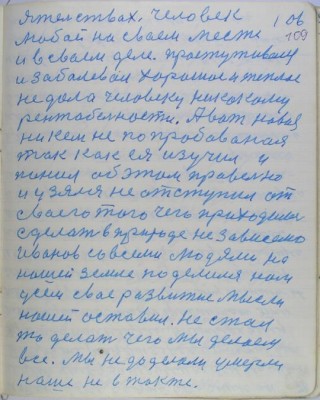 ятельствах. Человек 106
любой на своем месте 109
и в своем деле простуживался
и заболевал хорошое и теплое
не дала человеку никокому
рентабелности. А вот новая
никем не попробованая
так как ея изучил и
понял об этом правелно
и узялся не отступил от
своего того чего приходилос
сделат в природе не зависемо
Иванов со всеми людями на
нашей земле поделился нам
усем свае развитие мысли
нашей оставил. Не стал
то делат чего мы делаем
все. Мы не доделали умерли
наше не в такте.